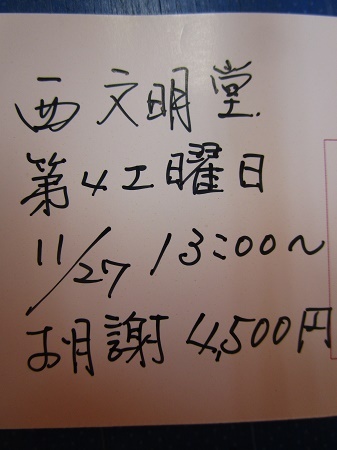 西文明堂
第4工曜日
11/27 13:00〜
お月謝 4,500円